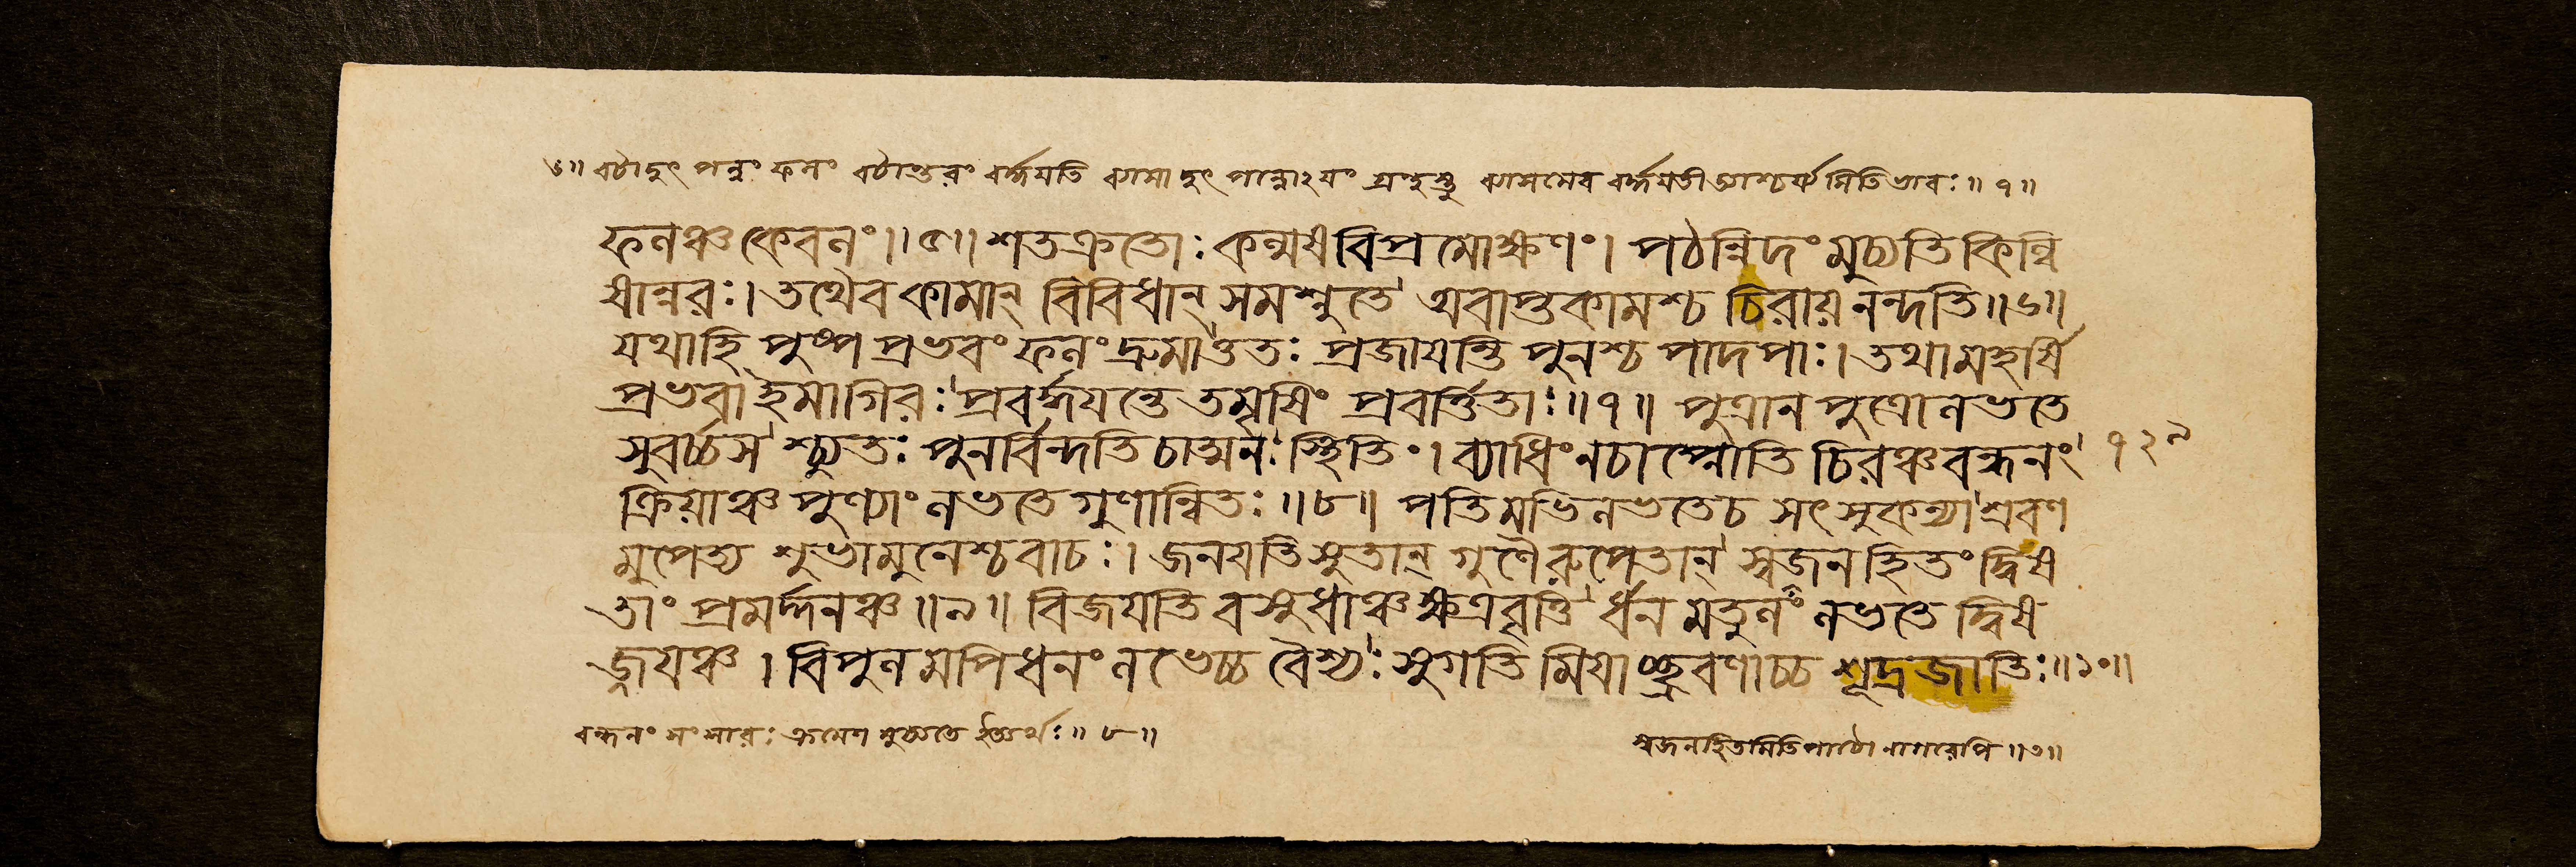 ৬॥ বটাদুৎ পন্নং ফলং বটান্তরং বর্দ্ধযতি ব্যাসা দুৎ পন্নোঽযং গ্রন্থস্তু ব্যাসমেব বর্দ্ধযতী ত্যাশ্চর্য্য মিতি ভাবঃ॥ ৭॥
ফলঞ্চ কেবলং।॥৫॥ শতক্রতোঃ কল্মষবিপ্র মোক্ষণং। পঠন্নিদং মুচ্যতি কিল্বি
ষান্নরঃ। তথৈব কামান্ বিবিধান্ সমশ্নুতে অবাপ্তকামশ্চ চিরায় নন্দতি॥৬॥
যথাহি পুষ্প প্রভবং ফলং দ্রুমাত্ততঃ প্রজাযন্তি পুনশ্চ পাদপাঃ। তথা মহর্ষি
প্রভবা ইমাগিরঃ প্রবর্দ্ধযন্তে তমৃষিং প্রবর্ত্তিতাঃ॥৭॥ পুত্রান পুত্রো লভতে
সুবর্চ্চস শ্চ্যুতঃ পুনর্বিন্দতি চাত্মনঃ স্থিতিং। ব্যাধিং নচাপ্নোতি চিরঞ্চ বন্ধনং
১২৯
ক্রিয়াঞ্চ পুণ্যাং লভতে গুণান্বিতঃ॥৮॥ পতিমভি লভতেচ সৎ সুকন্যা শ্রবণ
মুপেত্য শুভা মুনেশ্চ বাচঃ। জনযতি সুতান্ গুণৈরুপেতান্ স্বজন হিতং দ্বিষ
তাং প্রমর্দ্দনঞ্চ॥৯॥ বিজযতি বসুধাঞ্চ ক্ষত্রবৃত্তি র্ধন মতুলং লভতে দ্বিষ
জ্জযঞ্চ। বিপুল মপি ধনং লভেচ্চ বৈশ্যঃ সুগতি মিযাচ্ছ্রবণাচ্চ শূদ্রজাতিঃ॥১০॥
বন্ধনং সংসারঃ ক্রমেণ মুচ্যতে ইত্যর্থঃ॥ ৮॥
স্বজনহিতমিতি পাঠো